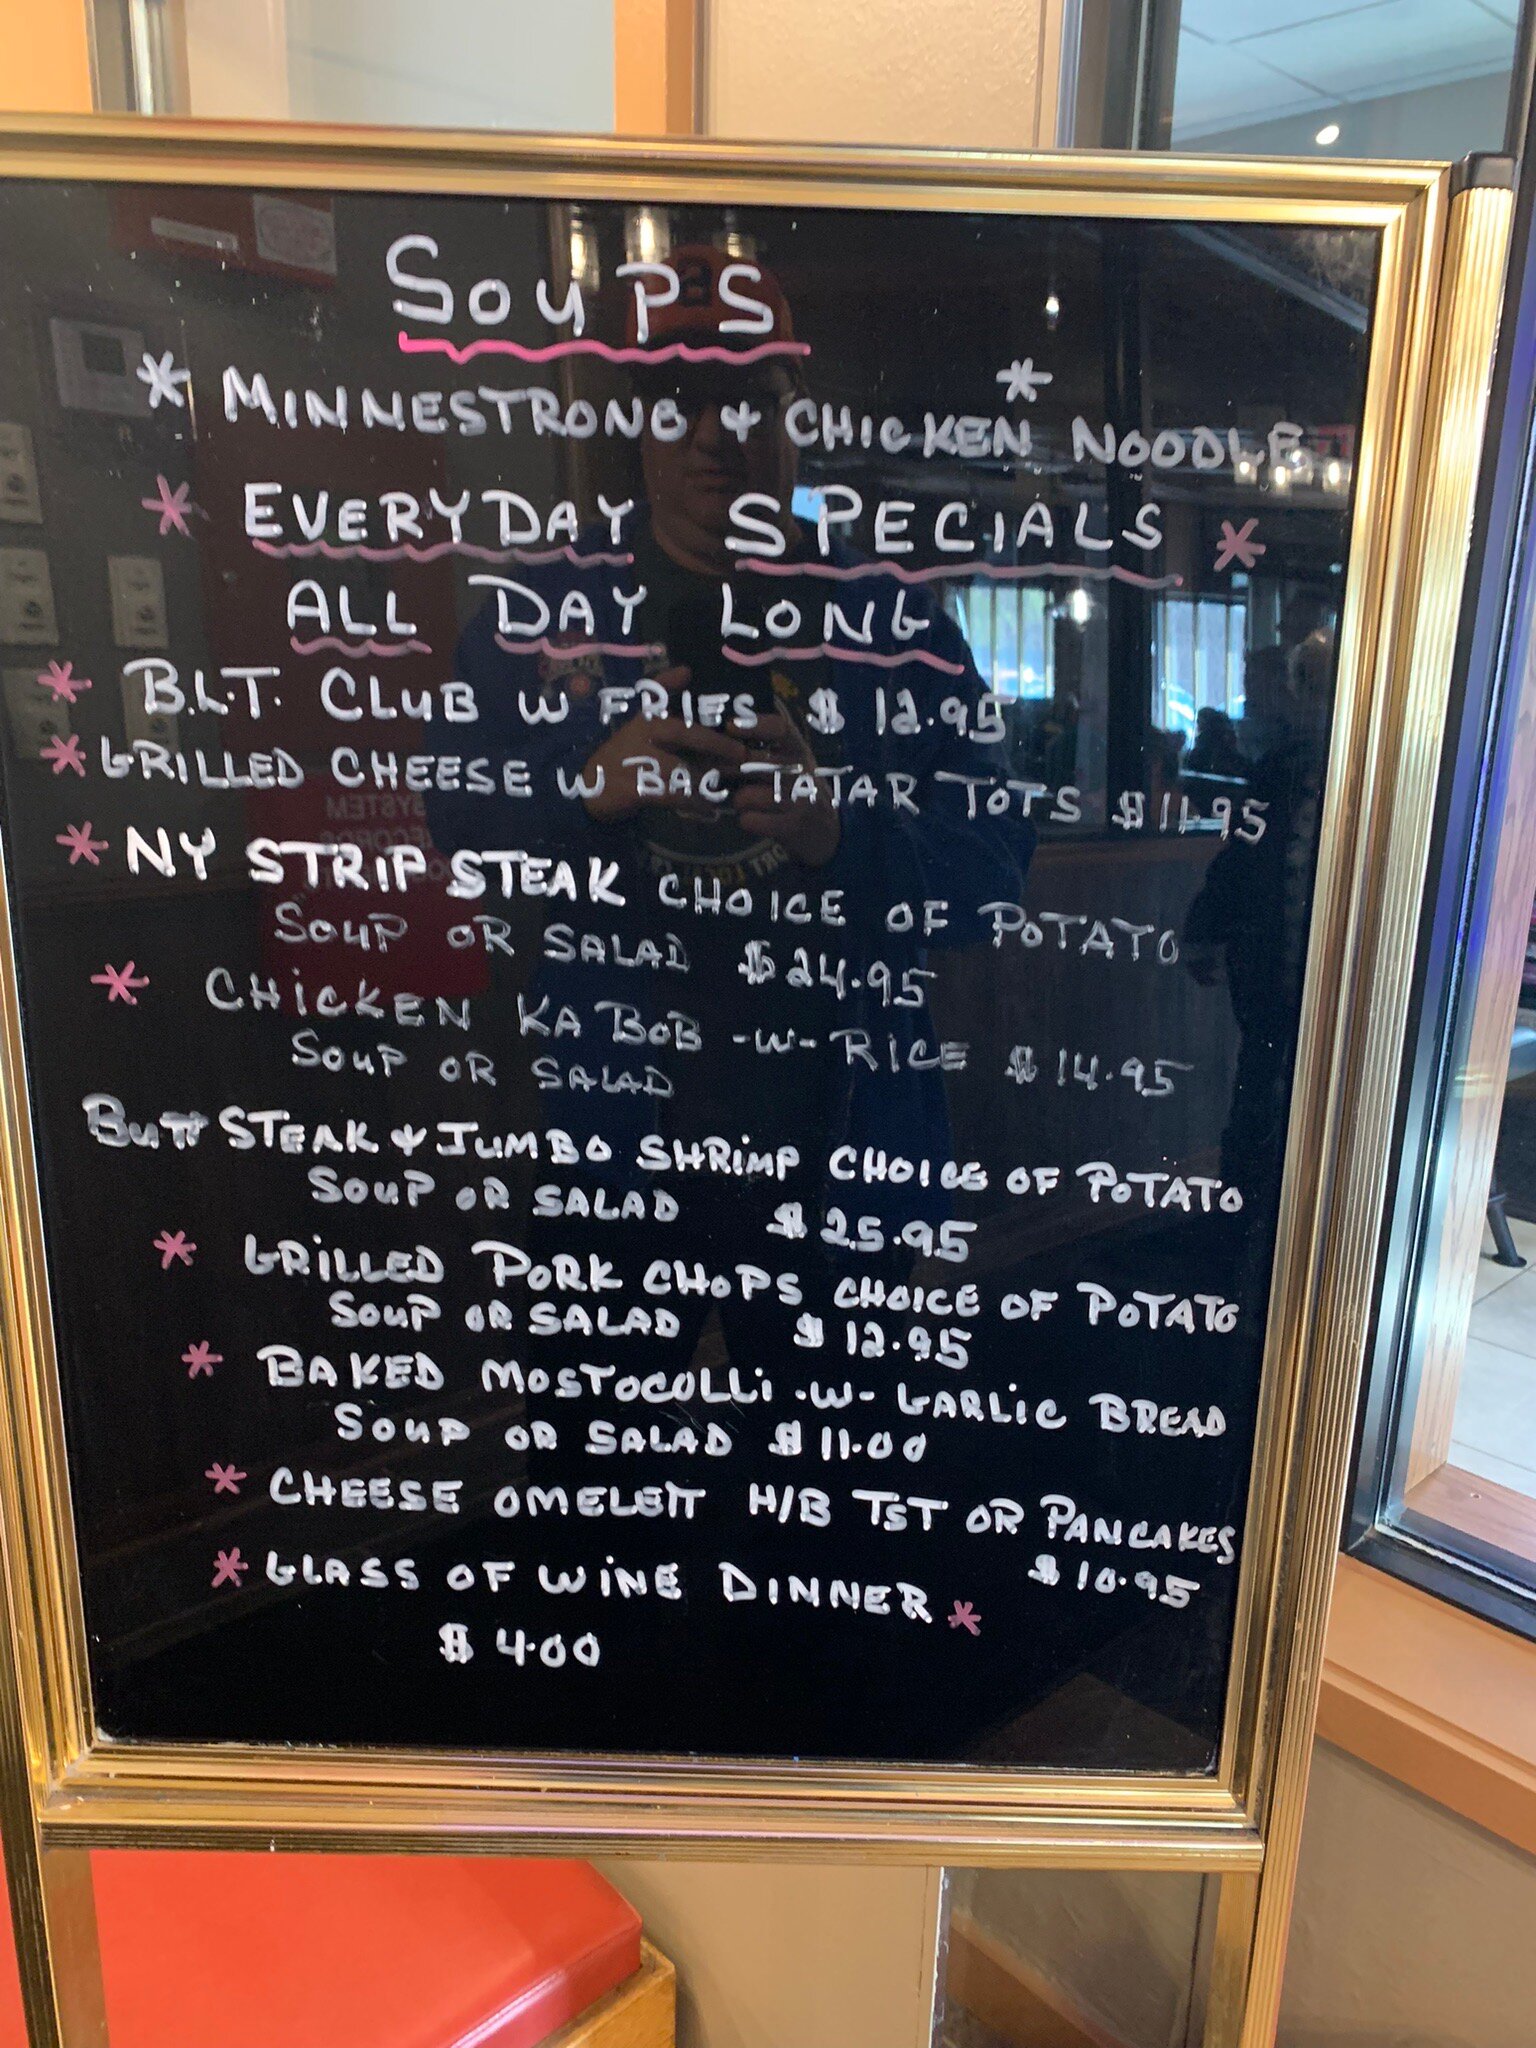 SOUPS
* MINNESTRONE & CHICKEN NOODLE *
* EVERYDAY SPECIALS *
ALL DAY LONG
* B.L.T. CLUB W FRIES $ 12.95
* GRILLED CHEESE W BAC TATAR TOTS $ 11.95
* NY STRIP STEAK CHOICE OF POTATO
SOUP OR SALAD $ 24.95
* CHICKEN KA BOB -W- RICE $ 14.95
SOUP OR SALAD
BUTT STEAK & JUMBO SHRIMP CHOICE OF POTATO
SOUP OR SALAD $ 25.95
* GRILLED PORK CHOPS CHOICE OF POTATO
SOUP OR SALAD $ 12.95
* BAKED MOSTOCOLLI -W- GARLIC BREAD
SOUP OR SALAD $ 11.00
* CHEESE OMELETT H/B TST OR PANCAKES
$ 10.95
* GLASS OF WINE DINNER *
$ 4.00